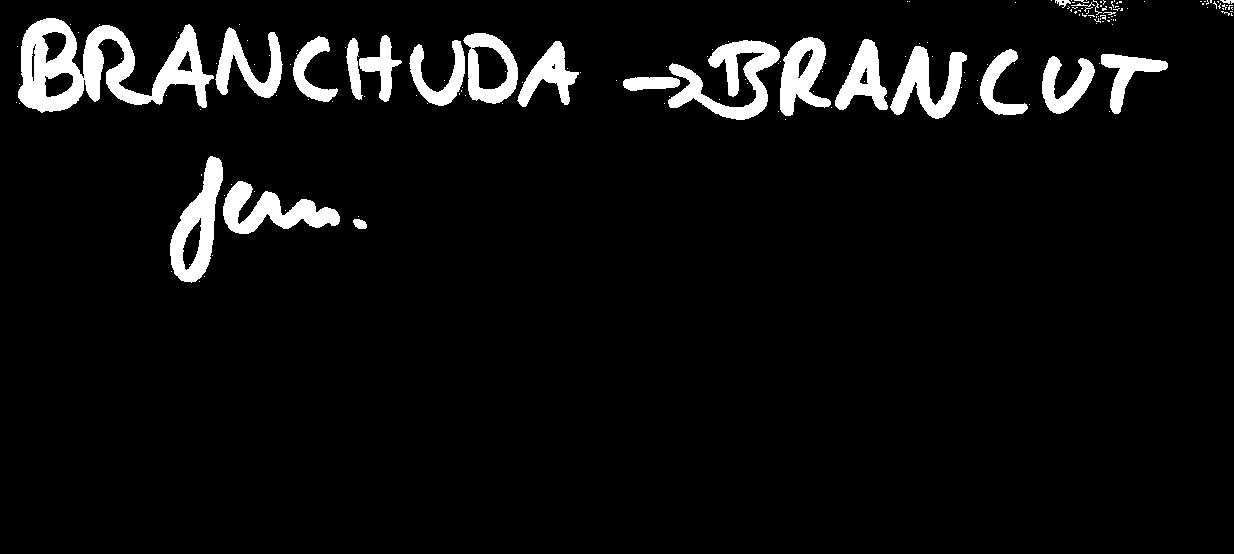 BRANCHUDA → BRANCUT
fem.